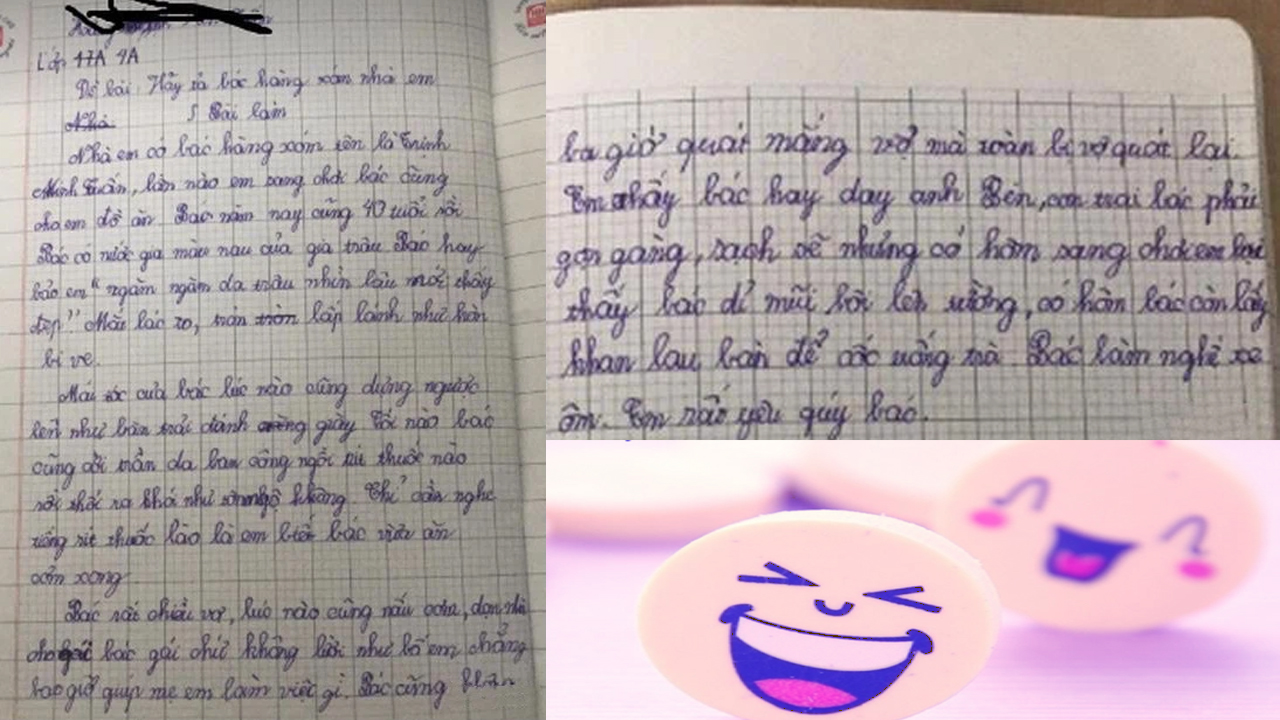 Lớp 17A 4A
Đề bài: Hãy tả bác hàng xóm nhà em
Nhà Bài làm
Nhà em có bác hàng xóm tên là Trịnh
Minh Tuấn, lần nào em sang chơi bác cũng
cho em đồ ăn Bác năm nay cũng 40 tuổi rồi
Bác có nước gia màu nau của gia trâu Bác hay
bảo em "ngăm ngăm da trâu nhìn lâu mới thấy
đẹp" Mắt bác to, tròn lấp lánh như hòn
bi ve.
Mái tóc của bác lúc nào cũng dựng ngược
lên như bàn trải đánh giầy Tối nào bác
cũng cởi trần da ban công ngồi rít thuốc nào
rồi thổi ra khói như không. Chỉ cần nghe
tiếng rít thuốc lào là em biết bác vừa ăn
cơm xong
Bác rất chiều vợ, lúc nào cũng nấu cơm, dọn nhà
cho bác gái chứ không lười như bố em chẳng
bao giờ giúp mẹ em làm việc gì. Bác cũng
ba giờ quát mắng vợ mà toàn bị vợ quát lại.
Em thấy bác hay day anh Bến, con trai bác phải
gọn gàng, sạch sẽ nhưng có hôm sang chơi em lại
thấy bác dỉ mũi bôi lên tường, có hôm bác còn lấy
khan lau bàn để cốc uống trà Bác làm nghề xe
ôm. Em rất yêu quý bác.